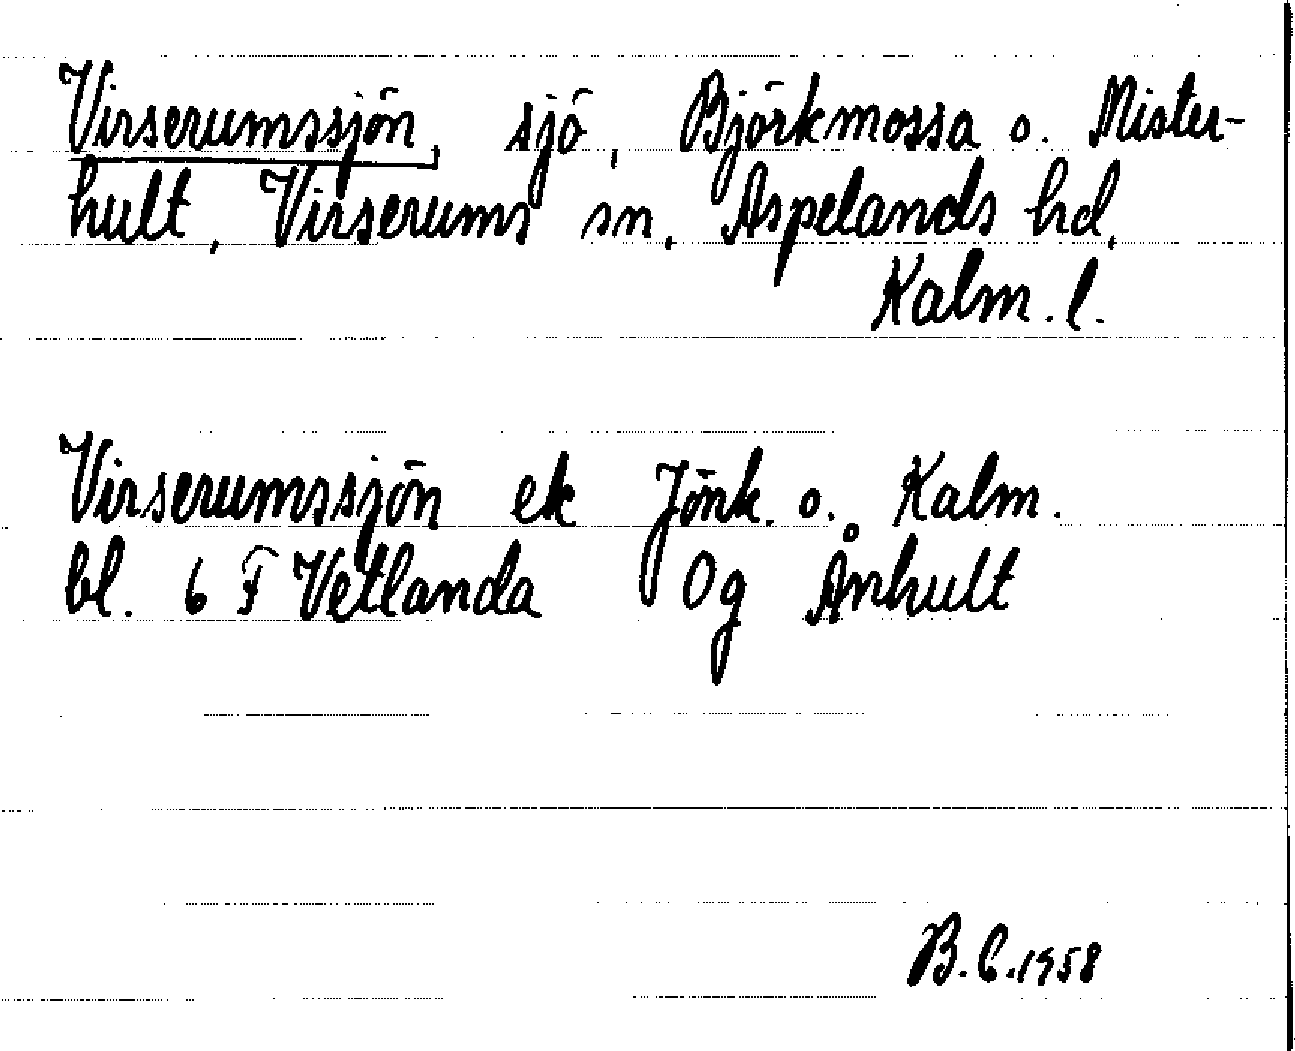 Virserumssjön, sjö, Björkmossa o. Mister-
hult, Virserums sn, Aspelands hd,
Kalm. l.
Virserumssjön ek Jönk. o. Kalm.
bl. 6 F Vetlanda 0g Ånhult
B.C.1958